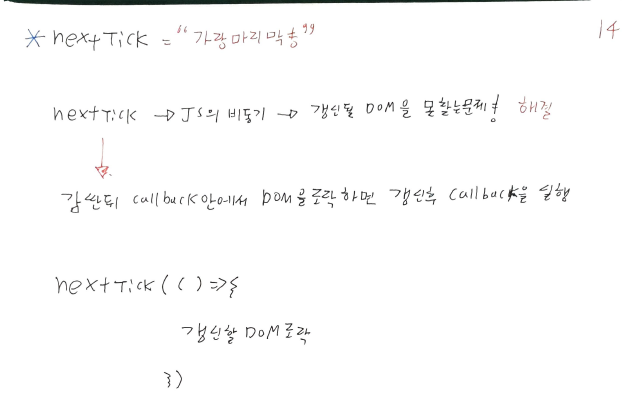 * nextTick = "가랑마리막층" 14
nextTick → JS의 비동기 → 갱신될 DOM을 못찾는문제 해결
감싼뒤 callback안에서 DOM을로락하면 갱신후 callback을 실행
nextTick(()=>{
갱신할 DOM로락
})